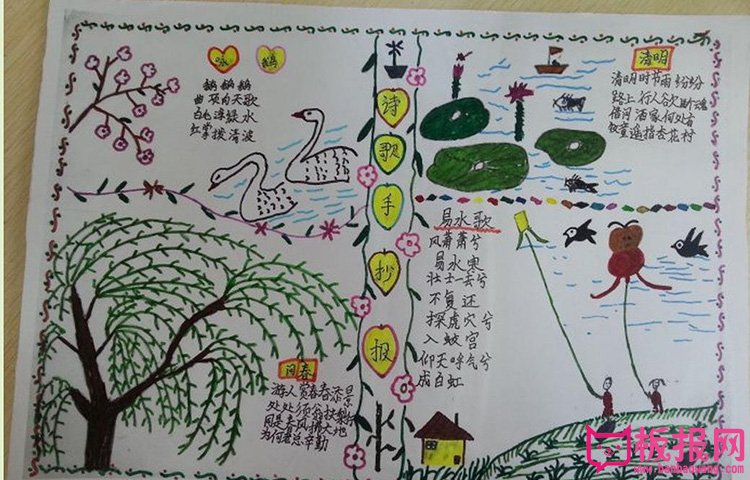 咏鹅
鹅鹅鹅
曲项向天歌
白毛浮绿水
红掌拨清波
诗歌手抄报
清明
清明时节雨纷纷
路上行人欲断魂
借问酒家何处有
牧童遥指杏花村
易水歌
风萧萧兮
易水寒
壮士一去兮
不复还
探虎穴兮
入蛟宫
仰天呼气兮
成白虹
问春
游人赏春春添景
处处须令扶
同是春风拂大地
为何君总辛勤
板报网
www.banbaowang.com